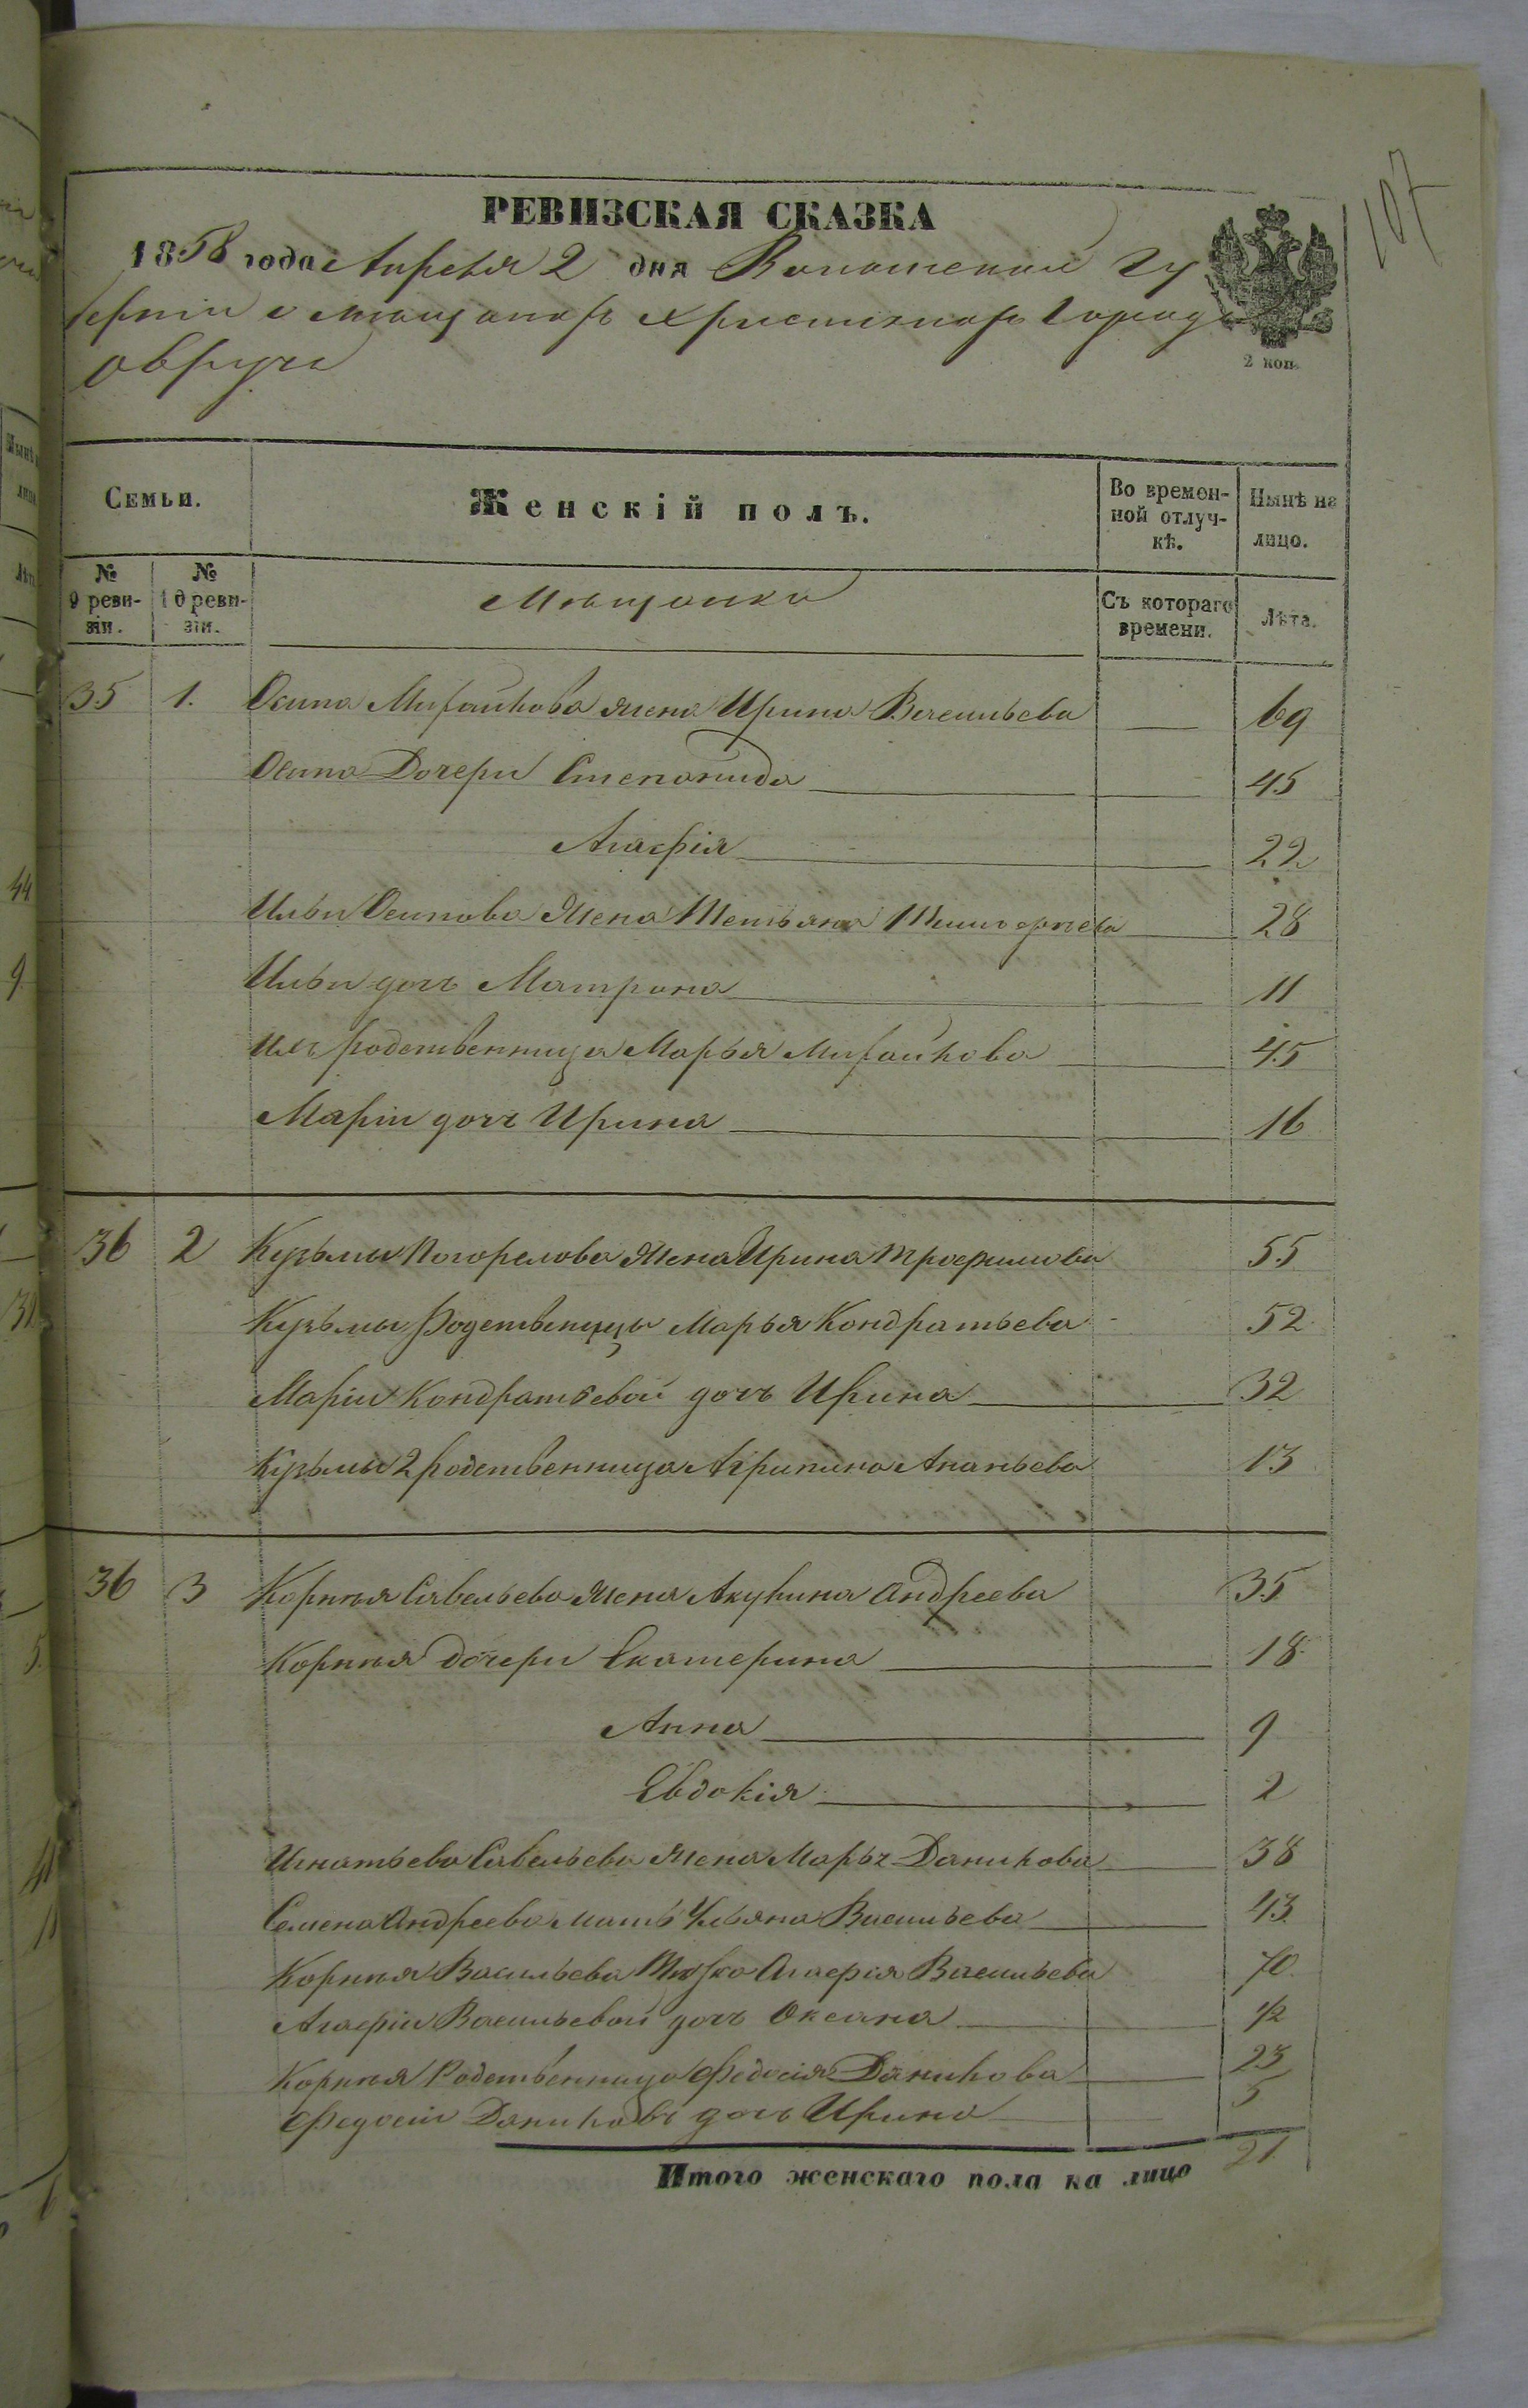 107
РЕВИЗСКАЯ СКАЗКА
1858 года Апреля 2 дня Волынской Гу
берніи о мещанахъ христіянахъ Города
Овруча
2 коп.
Семьи.
Женскій полъ.
Во времен-
ной отлуч-
кѣ.
Нынѣ на
лицо.
№
9 реви-
зіи.
№
10 реви-
зіи.
Мещанки
Съ котораго
времени.
Лѣта.
35 1. Осипа Михайлова жена Ирина Васильева 69
Осипа Дочери Степанида 45
Агафія 22
Ильи Осипова Жена Тетьяна Тимофѣева 28
Ильи дочь Матрона 11
Ильи родственница Марья Михайлова 45
Маріи дочь Ирина 16
36 2 Кузьмы Погорелова Жена Ирина Трофимова 55
Кузьмы Родственницы Марья Кондратьева 52
Маріи Кондратьевой дочь Ирина 32
Кузьмы 2 родственница Агрипина Ананьева 13
36 3 Корнея Савельева Жена Акулина Андреева 35
Корнея дочери Екатерина 18
Анна 9
Евдокія 2
Игнатьева Савельева Жена Марья Данилова 38
Семена Андреева мать Ульяна Васильева 43
Корнея Васильева Агафія Васильева 70
Агафіи Васильевой дочь Оксана 1/2
Корнея Родственница Федосія Данилова 23
Федосіи Даниловъ дочь Ирина 5
Итого женскаго пола на лицо 21